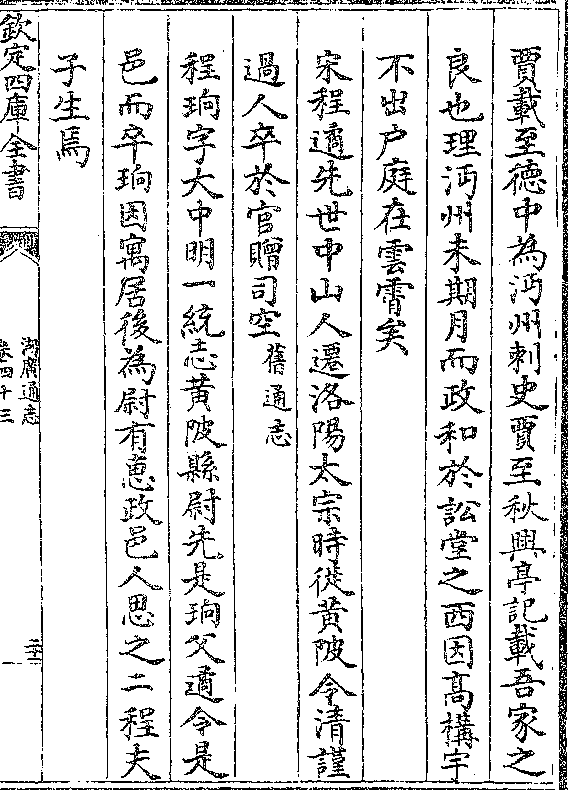 賈載至德中為沔州刺史賈至秋興亭記載吾家之
良也理沔州未期月而政和於訟堂之西因髙構宇
不出户庭在雲霄矣
宋程遹先世中山人遷洛陽太宗時徙黄陂令清謹
過人卒於官贈司空舊通志
程珦字大中明一統志黄陂縣尉先是珦父遹令是
邑而卒珦因寓居後為尉有恵政邑人思之二程夫
子生焉
欽定四庫全書
湖廣通志
卷四十三